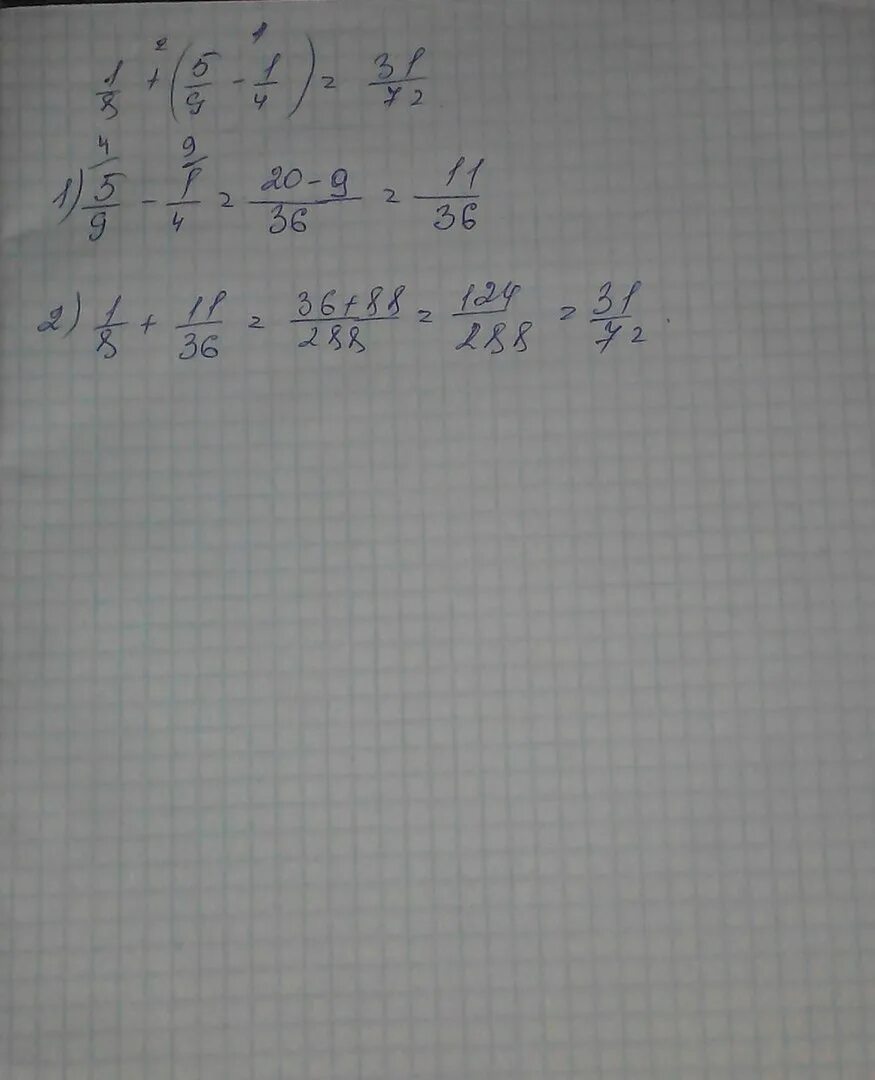 1/8 + (5/9 - 1/4) = 31/72
1) 5/9 - 1/4 = 20-9/36 = 11/36
2) 1/8 + 11/36 = 36+88/288 = 124/288 = 31/72.